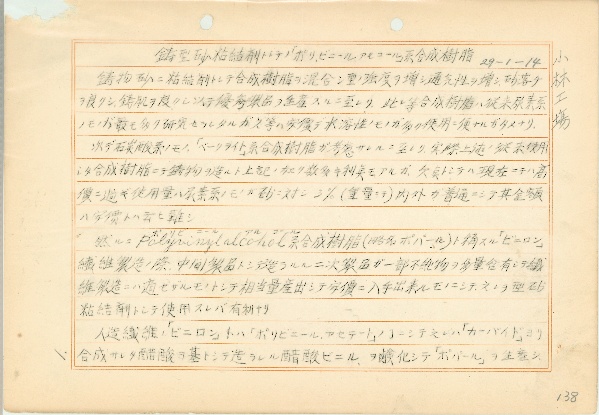 鋳型砂ノ粘結剤トシテ「ポリ、ビニール、アセコール」系合成樹脂 29-1-14
鋳物砂ニ粘結剤トシテ合成樹脂ヲ混合シ型ノ強度ヲ増シ通気性ヲ増シ砂落チ
ヲ良クシ鋳肌ヲ良クシ以テ優秀製品ヲ生産スルニ至レリ、此レ等合成樹脂ハ従来尿素系
ノモノガ最モ多ク研究セラレタルガ之等ハ安価デ水溶性ノモノガ多ク使用ニ便ナルガタメナリ、
次デ石炭酸系ノモノ、「ベークライト」系合成樹脂ガ考慮サルルニ至レリ、実際上述ノ従来使用
シタ合成樹脂ニテ鋳物ヲ造ルト上記ノ如ク数多ノ利点モアルガ、欠点トシテハ現在ニテハ高
価ニ過ギ使用量ハ尿素系ノモノデ砂ニ対シ 2% (重量ニテ)内外ガ普通ニシテ其金額
ハ安価トハ云ヒ難シ
然ルニ Polyvinylalcohol系合成樹脂(略名ポバール)ト称スル「ビニロン」
ポリビニール アルコール
繊維製造ノ際、中間製品トシテ造ラルル二次製品ガ一部不純物ヲ多量含有シテ繊
維製造ニハ適セザルモノトシテ相当量産出シテ安価ニ入手出来ルモノニシテ之ヲ型砂
粘結剤トシテ使用スレバ有利ナリ
人造繊維ノ「ビニロン」ハ「ポリビニール、アセテート」ノ一ニシテ之レハ「カーバイド」ヨリ
合成サレタ醋酸ヲ基トシテ造ラレル醋酸ビニール、ヲ鹸化シテ「ポバール」ヲ生産シ、
小林工場
138